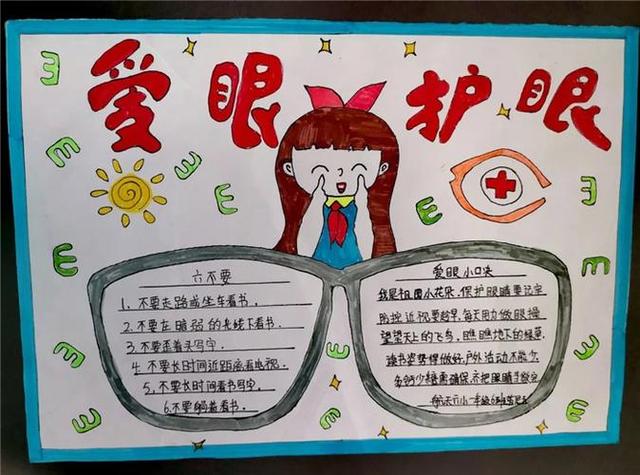 爱眼护眼
六不要
1、不要走路或坐车看书.
2.不要在暗弱的光线下看书.
3.不要歪着头写字.
4.不要长时间近距离看电视.
5.不要长时间看书写字.
6.不要躺着看书.
爱眼小口诀
我是祖国小花朵.保护眼睛要记牢
防控近视要趁早.每天用力做眼操
望望天上的飞鸟,瞧瞧地下的绿草.
读书姿势得做好.户外活动不能少.
多钙少糖需确保.齐把眼睛
航天六小一年级6班